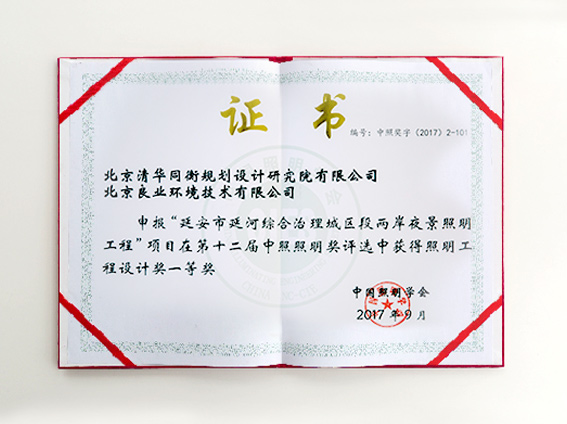 证 书
编号：中照奖字（2017）2-101
北京清华同衡规划设计研究院有限公司
北京良业环境技术有限公司
申报“延安市延河综合治理城区段两岸夜景照明
工程”项目在第十二届中照照明奖评选中获得照明工
程设计奖一等奖
中国照明学会
2017 年 9 月